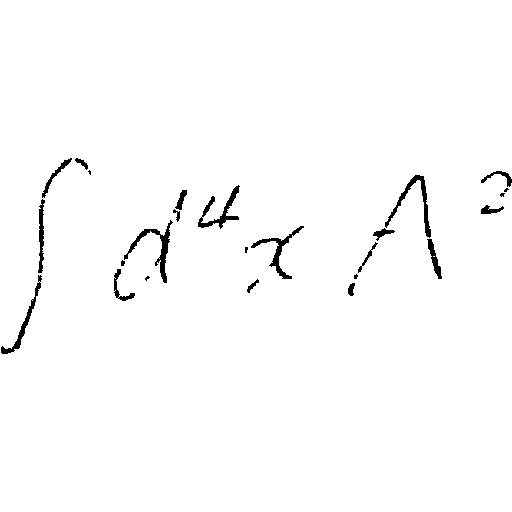 ∫ d⁴x A²